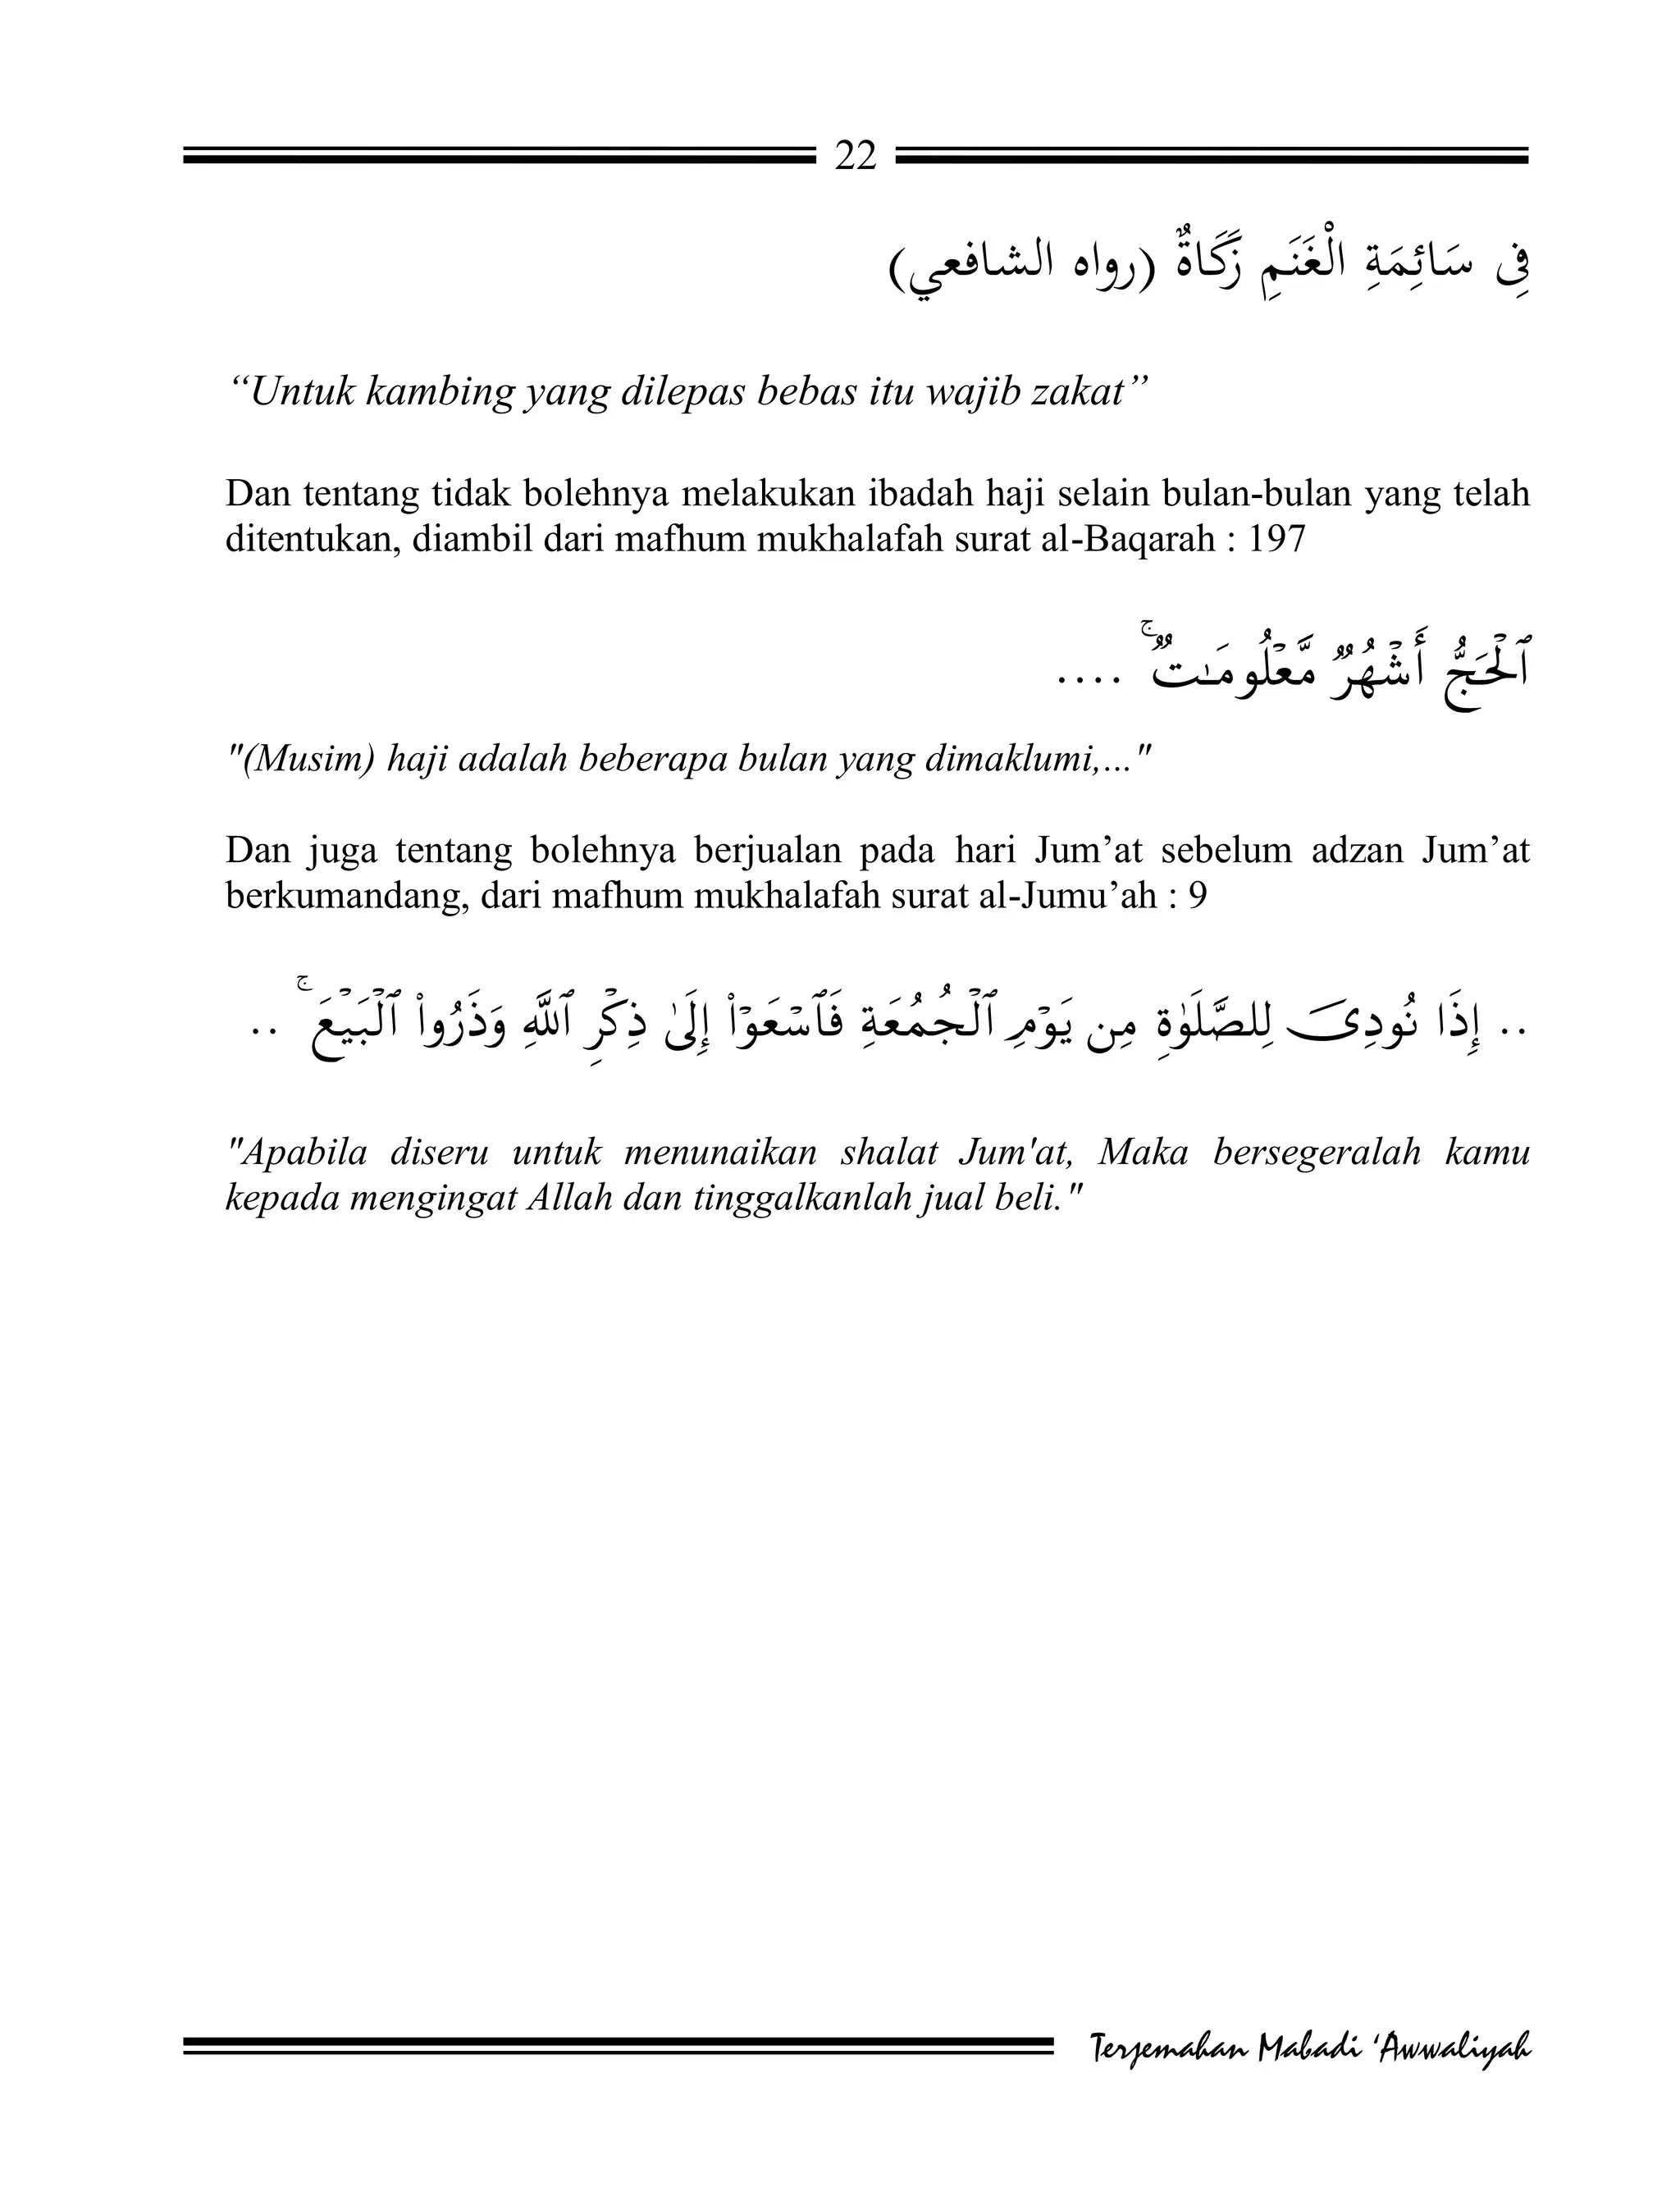 22
فِى سَائِمَةِ الْغَنَمِ زَكَاةٌ (رواه الشافعي)
“Untuk kambing yang dilepas bebas itu wajib zakat”
Dan tentang tidak bolehnya melakukan ibadah haji selain bulan-bulan yang telah
ditentukan, diambil dari mafhum mukhalafah surat al-Baqarah : 197
ٱلْحَجُّ أَشْهُرٌ مَّعْلُومَـٰتٌ ۚ ....
"(Musim) haji adalah beberapa bulan yang dimaklumi,..."
Dan juga tentang bolehnya berjualan pada hari Jum’at sebelum adzan Jum’at
berkumandang, dari mafhum mukhalafah surat al-Jumu’ah : 9
.. إِذَا نُودِى لِلصَّلَوٰةِ مِن يَوْمِ ٱلْجُمُعَةِ فَٱسْعَوْا۟ إِلَىٰ ذِكْرِ ٱللَّهِ وَذَرُوا۟ ٱلْبَيْعَ ۚ ..
"Apabila diseru untuk menunaikan shalat Jum'at, Maka bersegeralah kamu
kepada mengingat Allah dan tinggalkanlah jual beli."
Terjemahan Mabadi ‘Awwaliyah